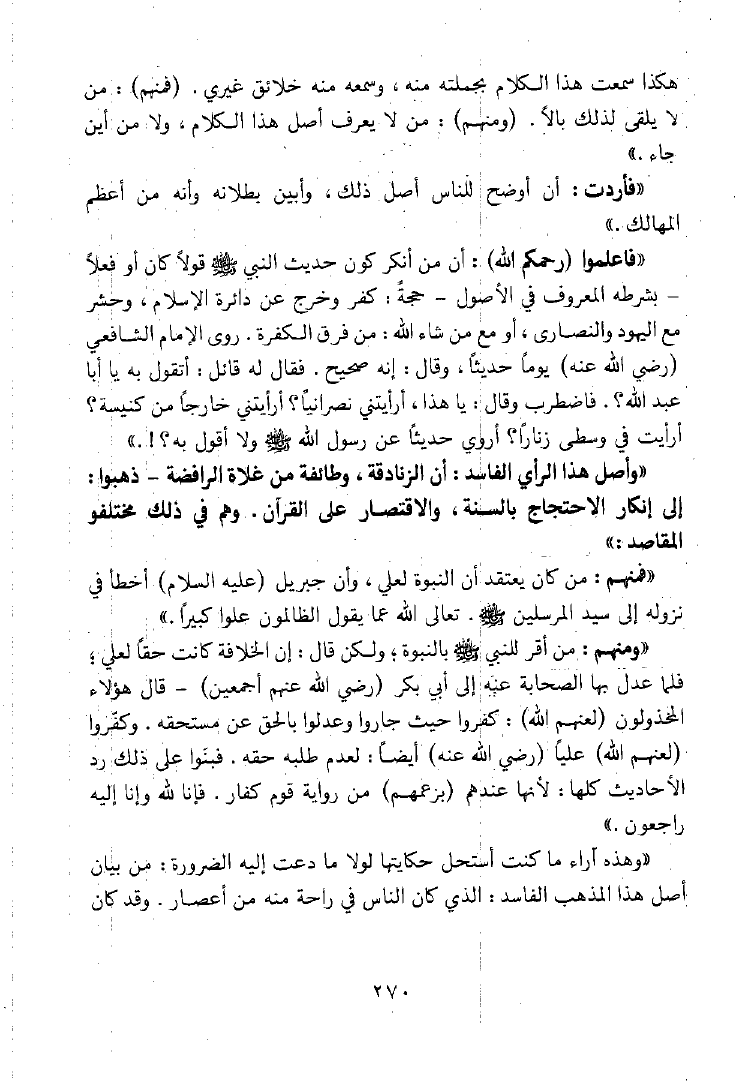 هكذا سمعت هذا الكلام بجملته منه ، وسمعه منه خلائق غيري . (فمنهم) : من
لا يلقى لذلك بالاً . (ومنهم) : من لا يعرف أصل هذا الكلام ، ولا من أين
جاء .»
«فأردت : أن أوضح للناس أصل ذلك ، وأبين بطلانه وأنه من أعظم
المهالك .»
«فاعلموا (رحمكم الله) : أن من أنكر كون حديث النبي ﷺ قولاً كان أو فعلاً
– بشرطه المعروف في الأصول – حجةً : كفر وخرج عن دائرة الإسلام ، وحشر
مع اليهود والنصارى ، أو مع من شاء الله : من فرق الكفرة . روى الإمام الشافعي
(رضي الله عنه) يوماً حديثاً ، وقال : إنه صحيح . فقال له قائل : أتقول به يا أبا
عبد الله ؟ . فاضطرب وقال : يا هذا ، أرأيتني نصرانياً ؟ أرأيتني خارجاً من كنيسة ؟
أرأيت في وسطى زناراً ؟ أروي حديثاً عن رسول الله ﷺ ولا أقول به ؟! .»
«وأصل هذا الرأي الفاسد : أن الزنادقة ، وطائفة من غلاة الرافضة – ذهبوا :
إلى إنكار الاحتجاج بالسنة ، والاقتصار على القرآن . وهم في ذلك مختلفو
المقاصد :»
«فمنهم : من كان يعتقد أن النبوة لعلي ، وأن جبريل (عليه السلام) أخطأ في
نزوله إلى سيد المرسلين ﷺ . تعالى الله عما يقول الظالمون علوا كبيراً .»
«ومنهم : من أقر للنبي ﷺ بالنبوة ؛ ولكن قال : إن الخلافة كانت حقاً لعلي ؛
فلما عدل بها الصحابة عنه إلى أبي بكر (رضي الله عنهم أجمعين) – قال هؤلاء
المخذولون (لعنهم الله) : كفروا حيث جاروا وعدلوا بالحق عن مستحقه . وكفّروا
(لعنهم الله) علياً (رضي الله عنه) أيضاً : لعدم طلبه حقه . فبنَوا على ذلك رد
الأحاديث كلها : لأنها عندهم (بزعمهم) من رواية قوم كفار . فإنا لله وإنا إليه
راجعون .»
«وهذه آراء ما كنت أستحل حكايتها لولا ما دعت إليه الضرورة : من بيان
أصل هذا المذهب الفاسد : الذي كان الناس في راحة منه من أعصار . وقد كان
٢٧٠